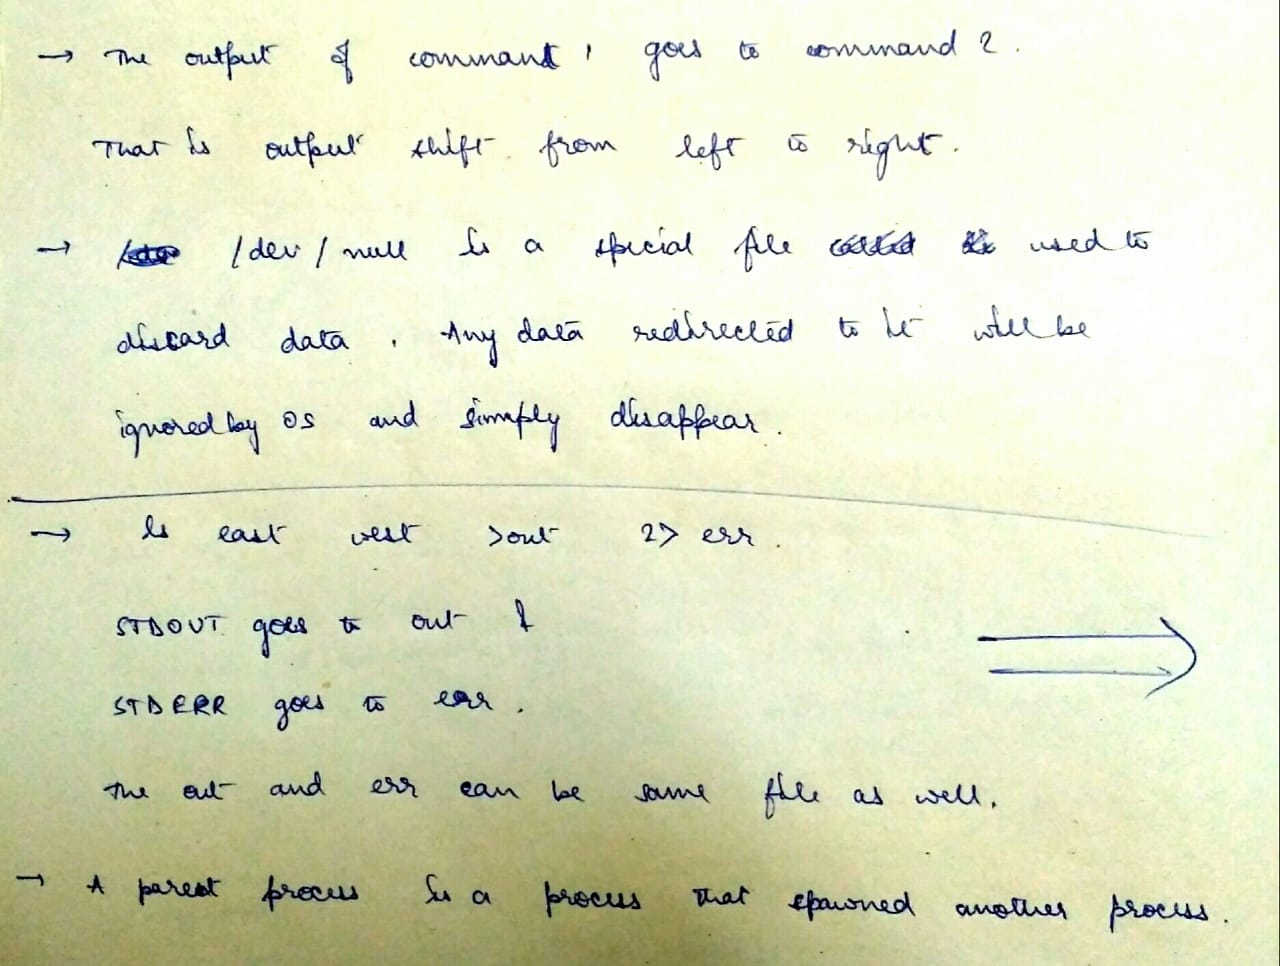 → The output of command 1 goes to command 2.
That is output shift from left to right.
→ /dev/null is a special file used to
discard data. Any data redirected to it will be
ignored by OS and simply disappear.
→ ls east west >out 2> err.
STDOUT goes to out &
STDERR goes to err.
The out and err can be same file as well.
→ A parent process is a process that spawned another process.